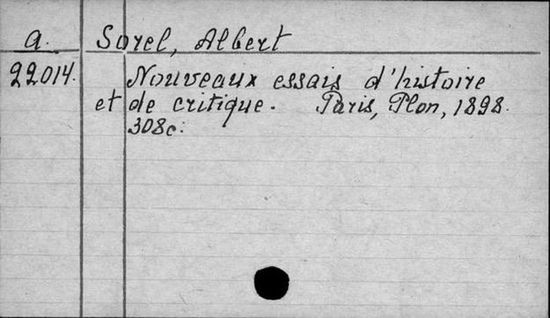 a. Sorel, Albert
22014. Nouveaux essais d'histoire
et de critique. Paris, Plon, 1898.
308c.